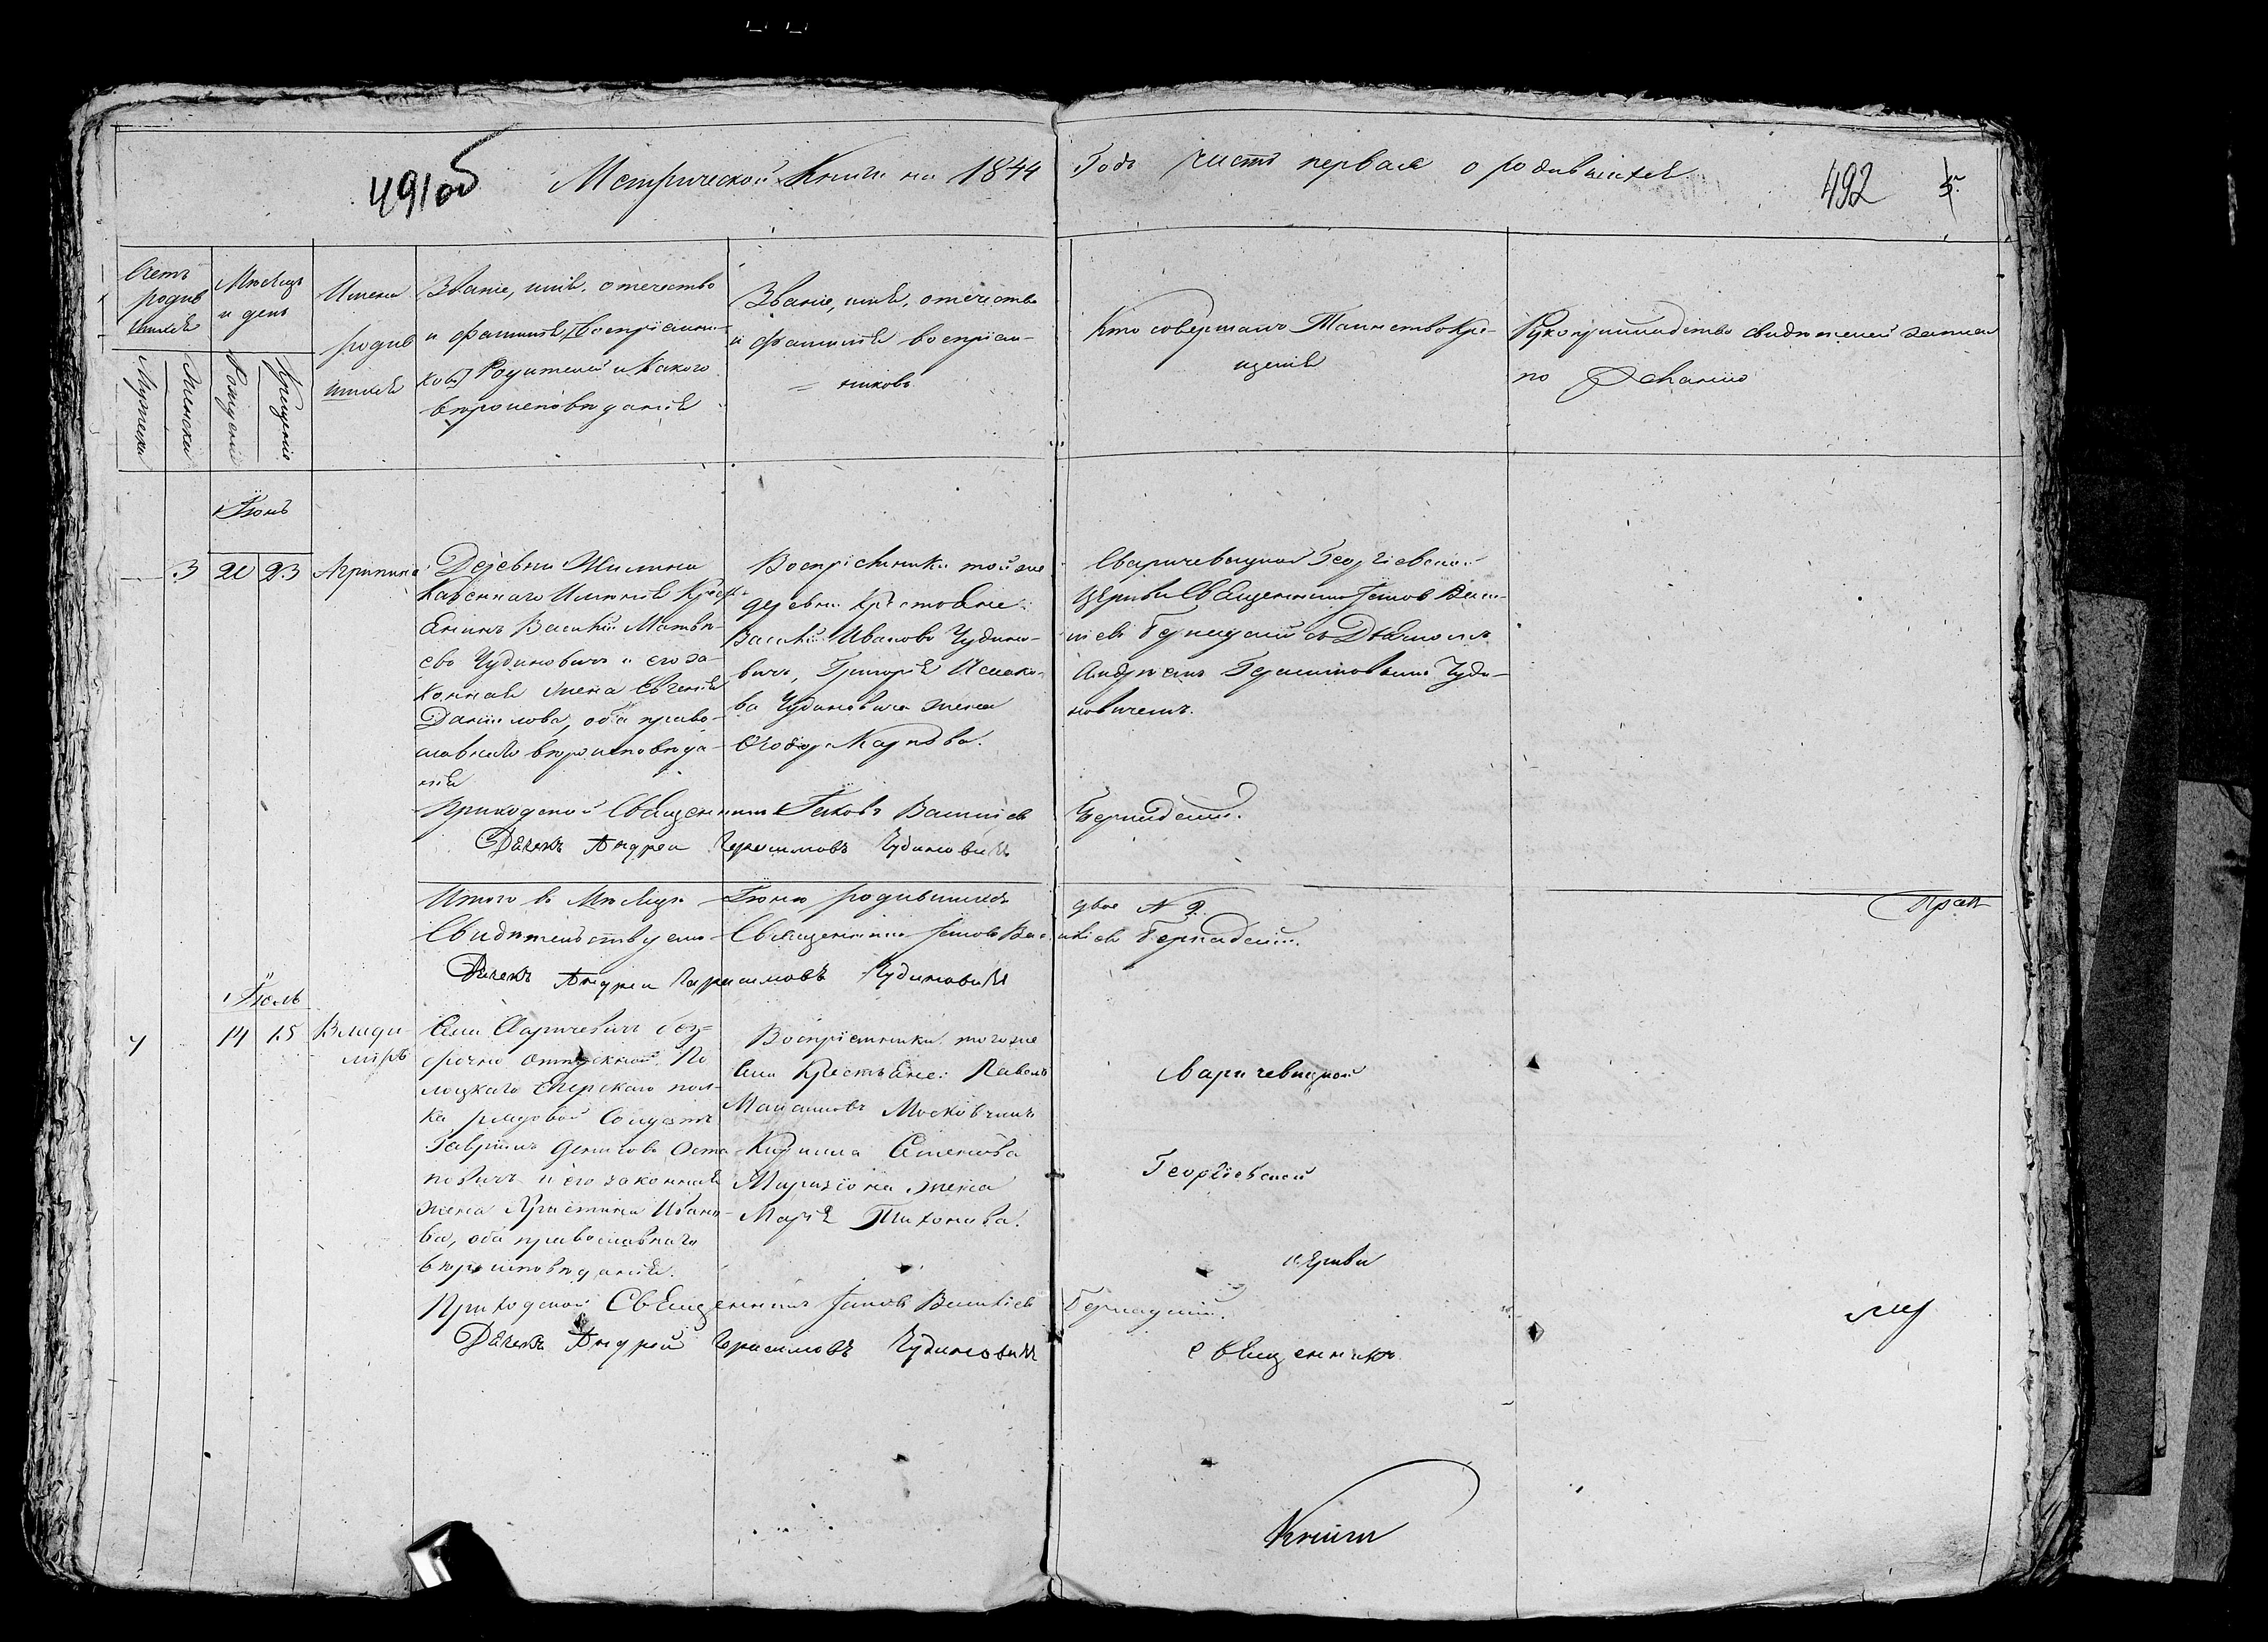 491об
Метрической Книги на 1844 Годъ часть первая о родившихся
492
Счетъ родившихся
Мужеска
Женска
Месяцъ и день
Рожденія
Крещенія
Имена родившихся
Званіе, имя, отечество
и фамилія
Родителей и какого
вѣроисповѣданія
Званіе, имя, отечество
и фамилія воспріем-
никовъ
Кто совершалъ Таинство Кре-
щенія
Рукоприкладство свидѣтелей записи
по желанію
Іюнь
3 20 23
Агрипина
Деревни
Казеннаго Имѣнія Крест
янинъ Василій Матвѣ-
евъ Чудиновичъ и его за-
конная жена Евгенія
Данилова, оба право-
славнаго вѣроисповѣда-
нія
Воспріемники той же
деревни Крестьяне:
Василій Ивановъ Чудино-
вичъ, Григорія Исаако-
ва Чудиновича жена
Ѳеодора Карпова.
Сваричевицкой Георгіевской
Церкви Священникъ Іаковъ Васи-
ліевъ Бернадскій съ Дьячкомъ
Андреемъ Герасимовымъ Чуди-
новичемъ.
Приходской Священникъ Іаковъ Василіевъ Бернадскій.
Дьячекъ Андрей Герасимовъ Чудиновичъ
Итого въ Месяцѣ Іюню родившихся двое № 2
Свидѣтельствуемъ Священникъ Іаковъ Василіевъ Бернадскій.
Дьячекъ Андрей Герасимовъ Чудиновичъ
Іюль
4 14 15
Влади-
міръ
Села Сваричевичъ без-
срочно отпускной По
лоцкаго Егерскаго пол-
ка рядовой Солдатъ
Гавріилъ Денисовъ Оста
повичъ и его законная
жена Христина Ивано-
ва, оба православнаго
вѣроисповѣданія.
Воспріемники того же
Села Крестьяне: Павелъ
Московчикъ
Кирилла Семенова
жена
Марія Тихонова.
Сваричевицкой
Георгіевской
Церкви
Священникъ
Приходской Священникъ Іаковъ Василіевъ Бернадскій.
Дьячекъ Андрей Герасимовъ Чудиновичъ